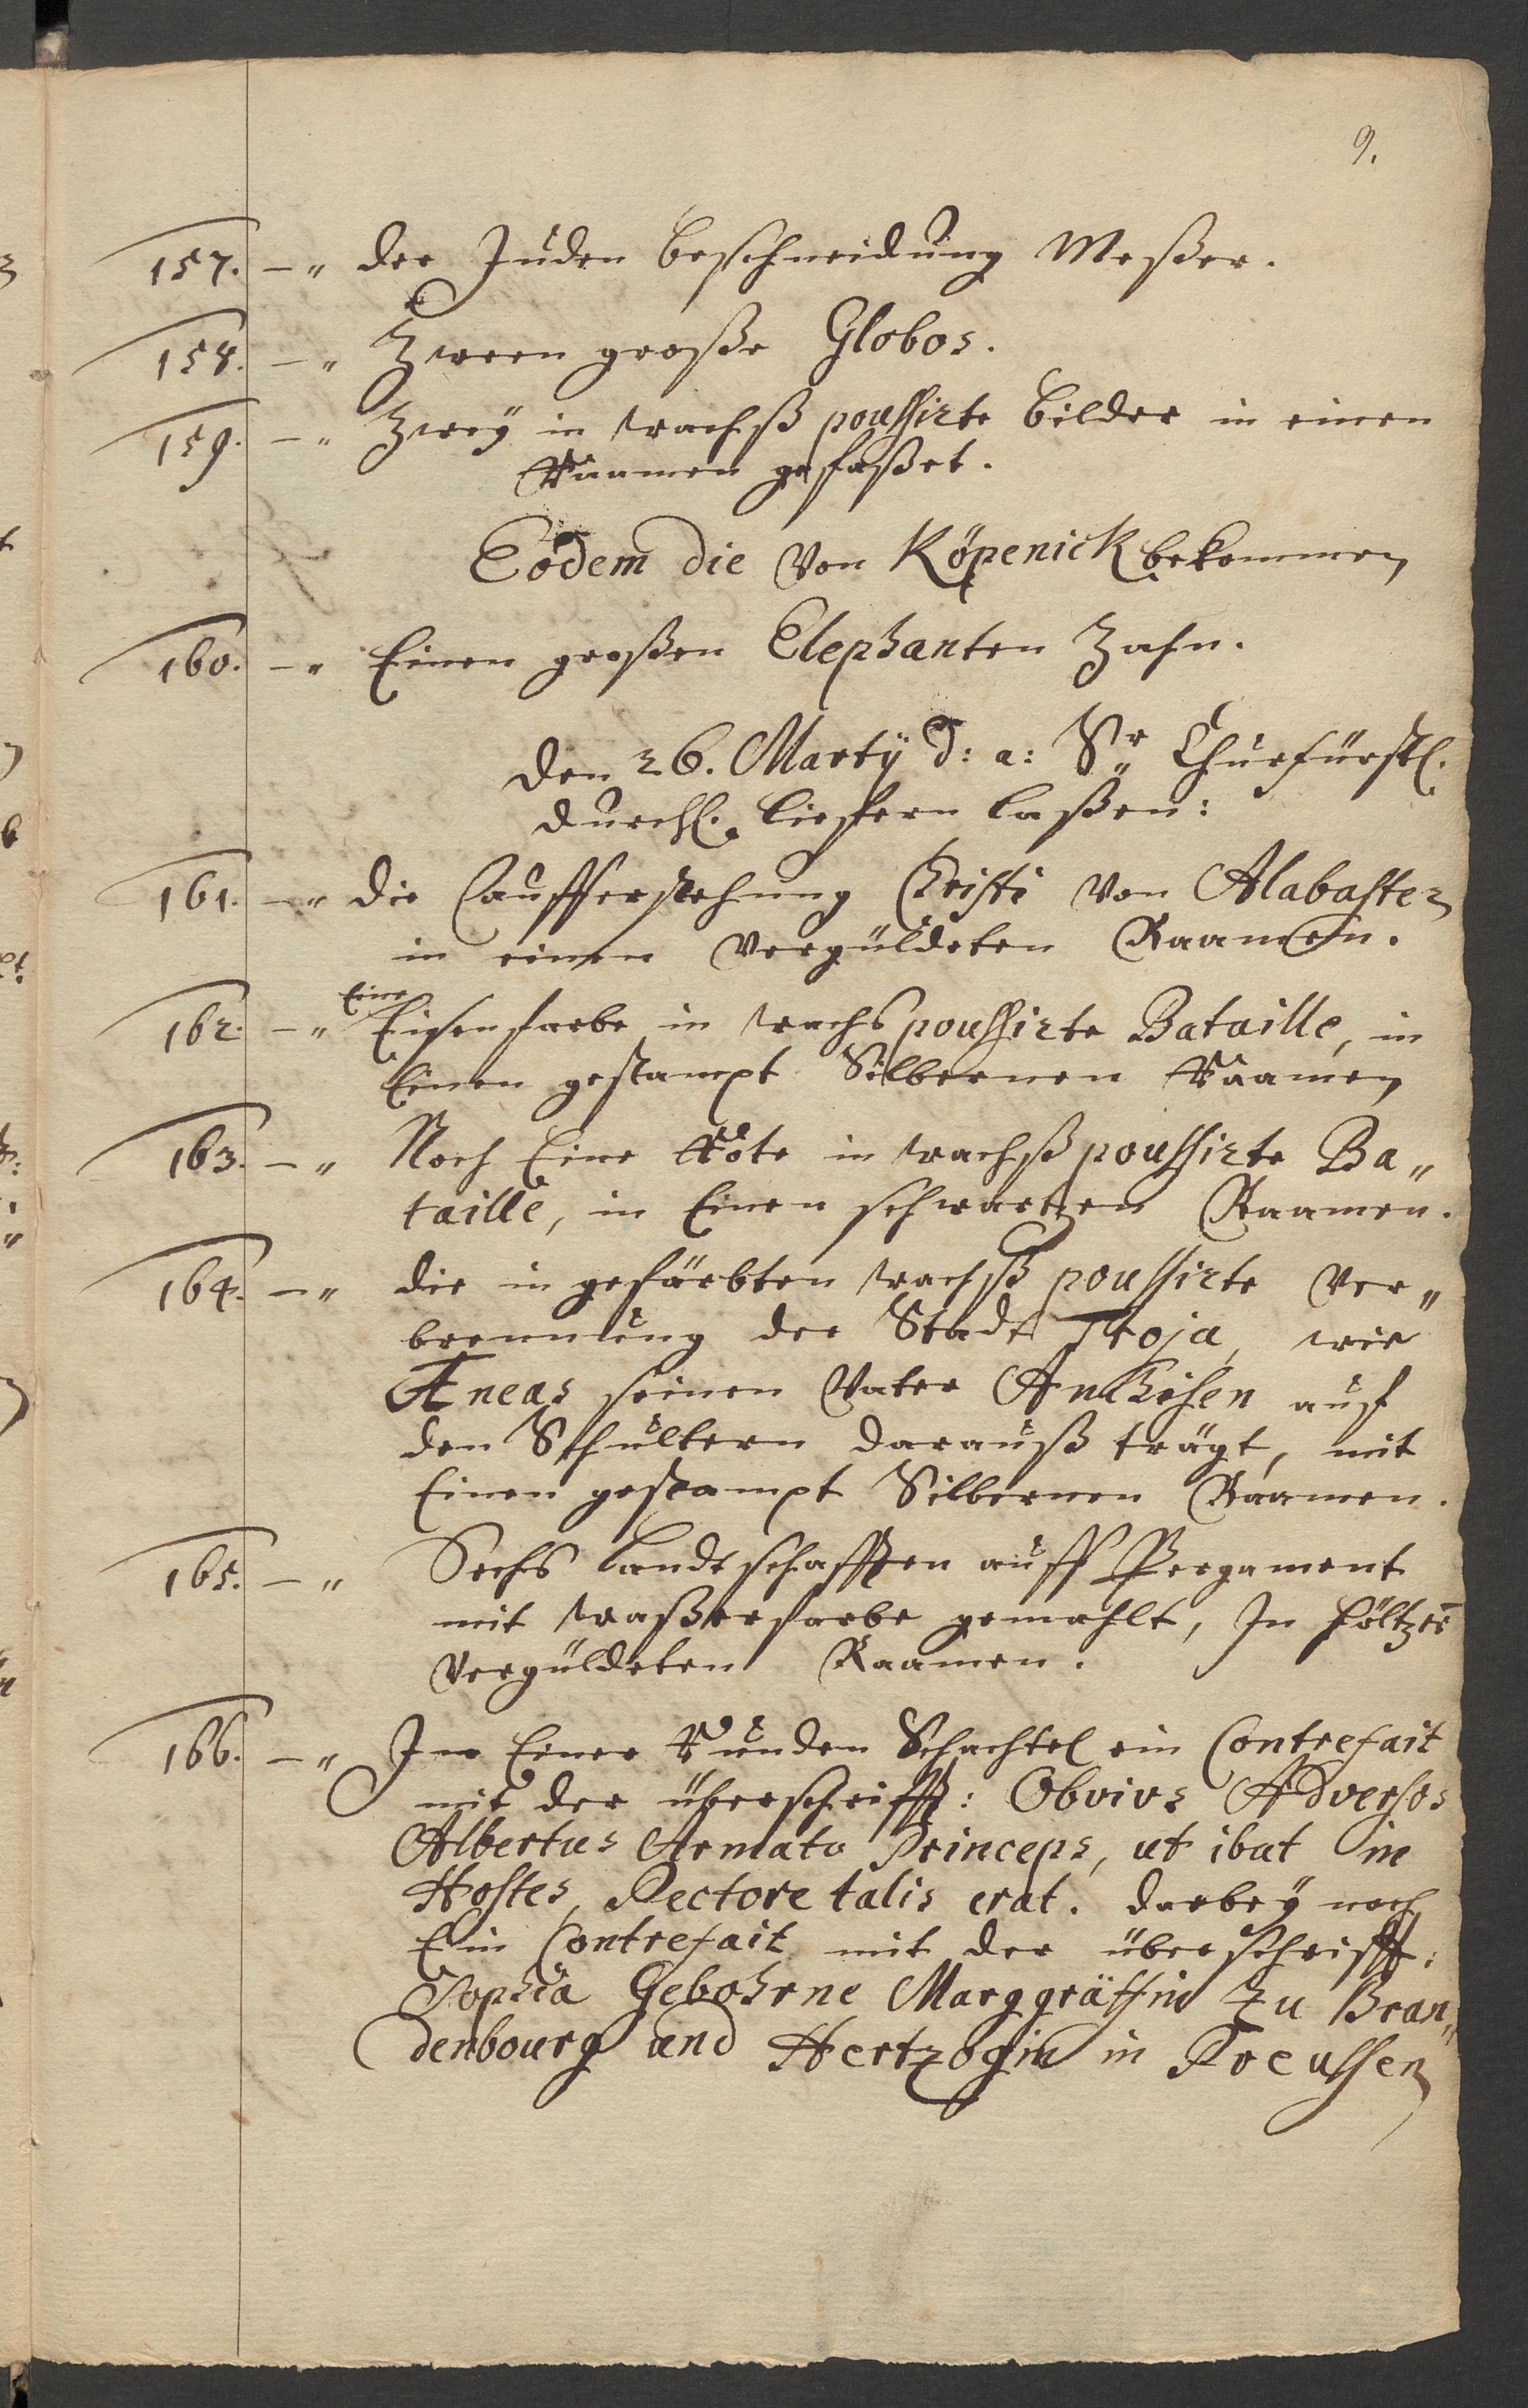 9.
157. –„ der Juden beschneidung Meßer.
158. –„ Zween große Globos.
159. –„ Zweÿ in wachß poussirte bilder in einen
Raamen gefaßet.
Eodem die von Köpenick bekommen
160. –„ Einen großen Elephanten Zahn.
den 26. Martij d: a: Sr. Churfürstl.
durchl. liefern laßen:
161. –„ die aufferstehung Christi von Alabaster
in einen vergüldeten Raamen.
162. –„ Eine Eisenfarbe in wachs poussirte Bataille, in
Einen gestampt Silbernen Raamen
163. –„ Noch Eine Rote in wachß poussirte Ba„
taille, in Einen schwartzen Raamen.
164. –„ die in gefärbten wachß poussirte Ver„
brennung der Stadt Troja, wie
Æneas seinen Vater Anchisen auf
den Schultern darauß trägt, mit
Einen gestampt Silbernen Raamen.
165. –„ Sechs landtschafften auff Pergament
mit waßerfarbe gemahlt, In höltzer
vergüldeten Raamen.
166. –„ In Einer Runden Schachtel ein Contrefait
mit der überschrifft: Obvius Adversos
Albertus Armato Princeps, ut ibat in
Hostes, Pectore talis erat. darbeÿ noch
Ein Contrefait mit der überschrifft:
Sophia Gebohrne Marggräffin zu Bran„
denbourg und Hertzogin in Preussen